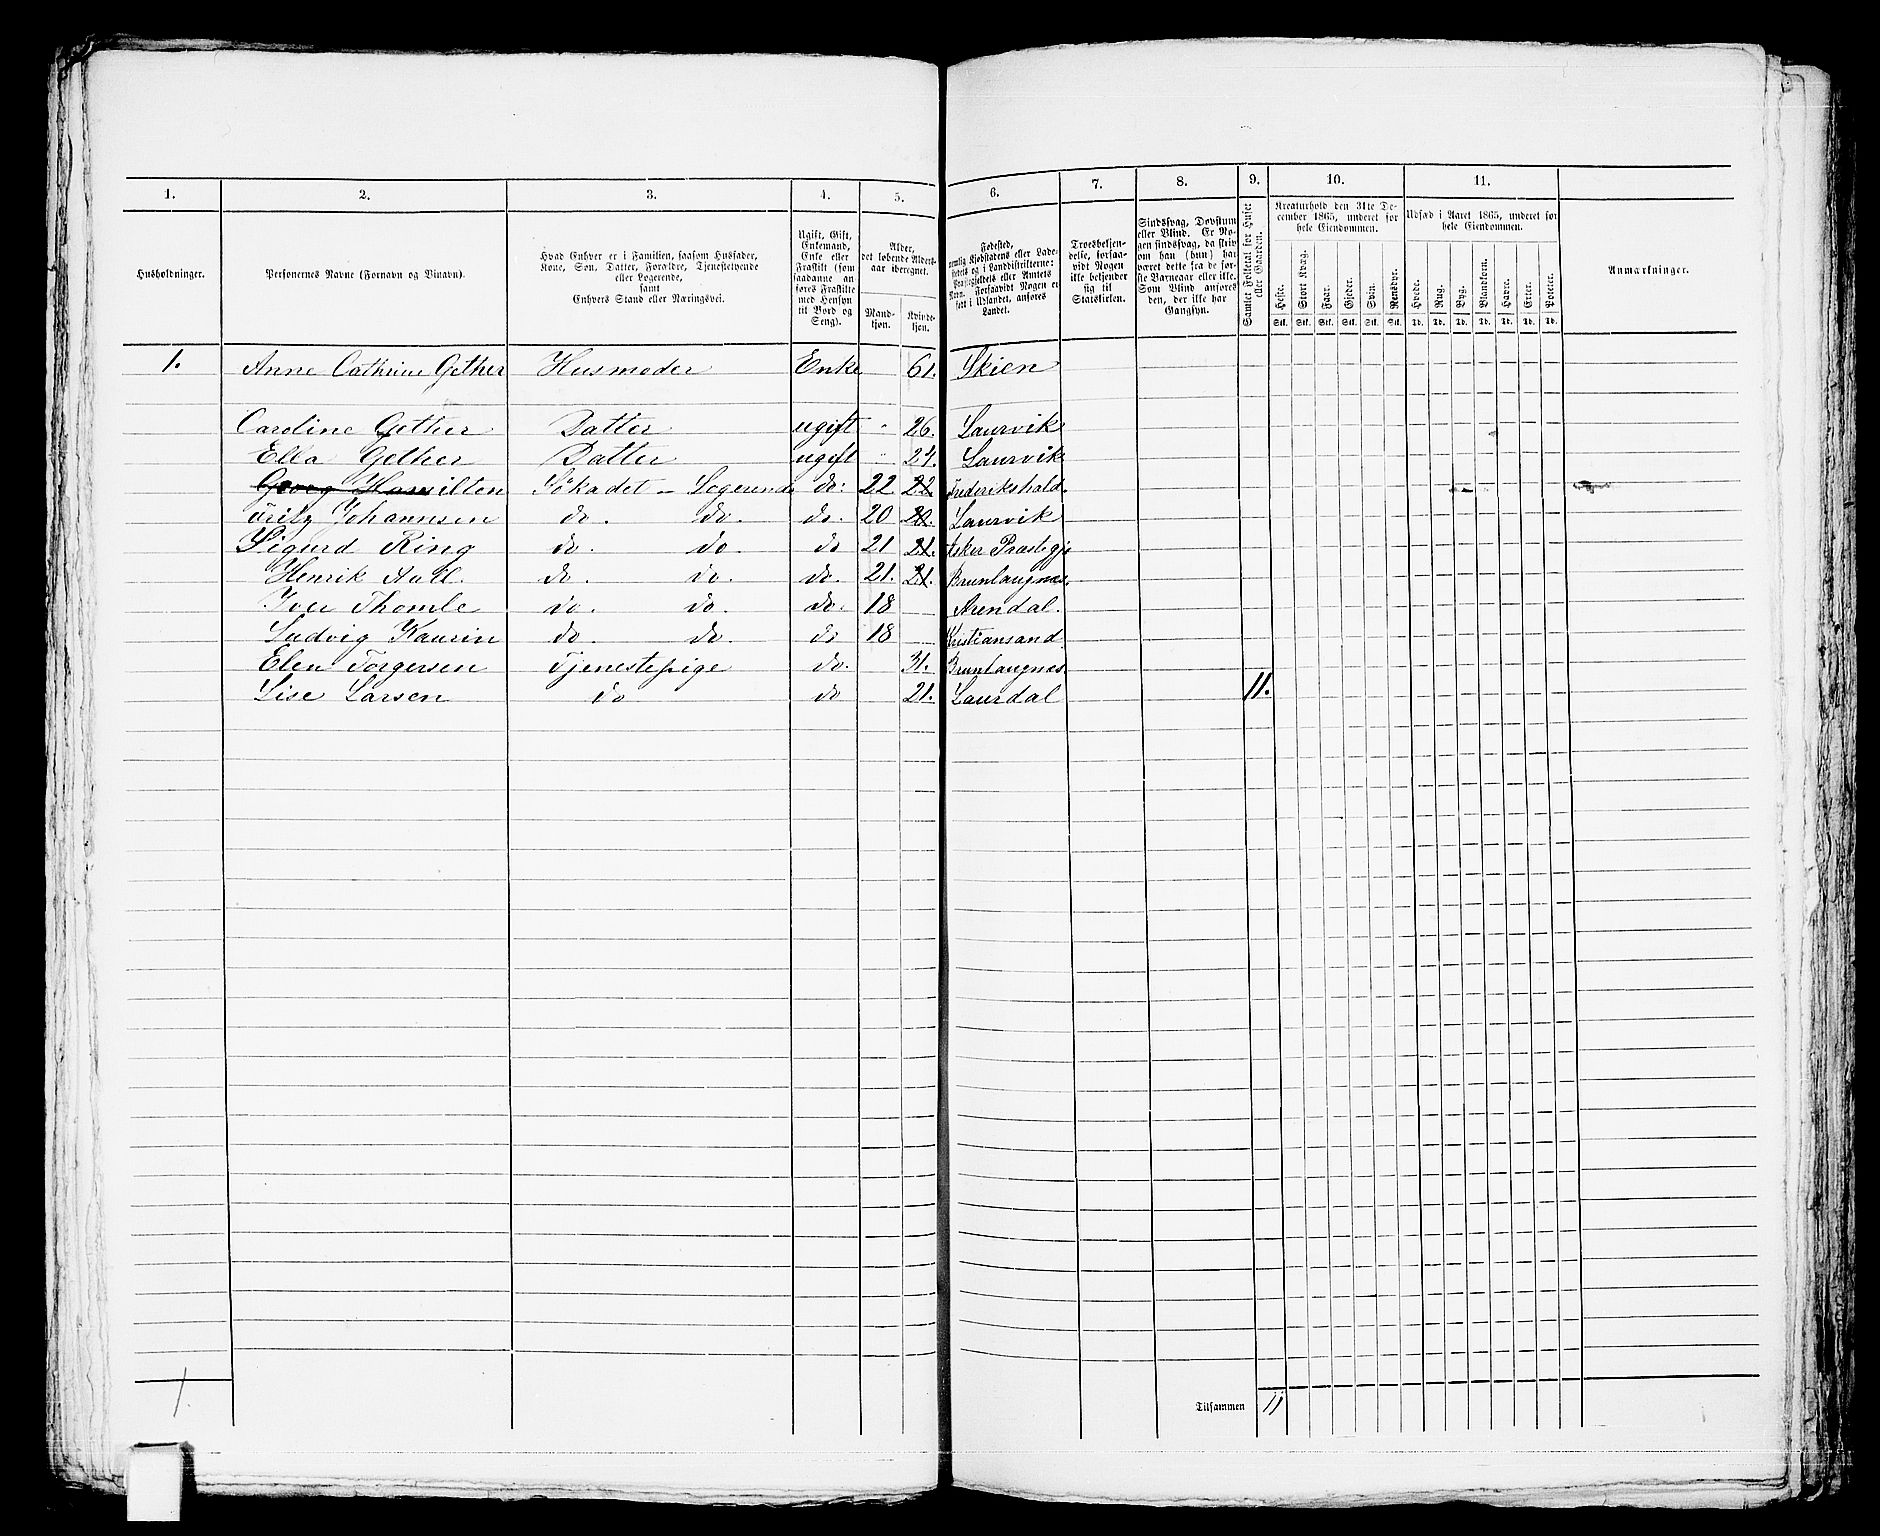 1. 2. 3. 4. 5. 6. 7. 8. 9. 10. 11.
Husholdninger.
Personernes Navne (Fornavn og Tilnavn).
Hvad Enhver er i Familien, saasom Husfader,
Kone, Søn, Datter, Forældre, Tjenestetyende
eller Logerende,
samt
Enhvers Stand eller Næringsvei.
Ugift, Gift,
Enkemand,
Enke eller
Fraskilt (som
saadanne an-
føres Fraskilte
med Hensyn
til Bord og
Seng).
Alder,
det løbende Alders-
aar iberegnet.
Mand-
kjøn.
Kvinde-
kjøn.
Fødested,
nemlig Kjøbstadens eller Lade-
stedets og i Landdistrikterne:
Præstegjeldets eller Amtets
Navn. Forsaavidt Nogen er
født i Udlandet, anføres
Landet.
Troesbekjen-
delse, forsaa-
vidt Nogen
ikke bekjender
sig til
Statskirken.
Sindssvag, Døvstum
eller Blind. Er No-
gen sindssvag, da skriv
om han (hun) har
været dette fra de før-
ste Barneaar eller ikke.
Som Blind anføres
den, der ikke har
Gangsyn.
Samlet Folketal for Huset
eller Gaarden.
Kreaturhold den 31te De-
cember 1865, underet for
hele Eiendommen.
Heste. Stort Kvæg. Faar. Gjeder. Svin. Rensdyr.
Stk. Stk. Stk. Stk. Stk. Stk.
Udsæd i Aaret 1865, underet for
hele Eiendommen.
Hvede. Rug. Byg. Blandkorn. Havre. Erter. Poteter.
Td. Td. Td. Td. Td. Td. Td.
Anmærkninger.
1. Anne Cathrine Gether Husmoder Enke 61. Skien
Caroline Gether Datter ugift " 26. Laurvik
Ella Gether Datter ugift " 24. Laurvik
Georg Hamilton Sökadet - Logerende do: 22 22. Frederikshald.
Fritz Johannsen do. do. do. 20 20. Laurvik
Sigurd Ring do. do. do 21 21. Asker Præstegj.
Henrik Aall. do. do. do. 21. 21. Brunlaugnæs.
Iver Thomle do. do. do. 18 Arendal.
Ludvig Kaurin do. do. do 18 Kristiansand
Elen Torgersen Tjenestepige do. 31. Brunlaugnæs.
Lise Larsen do do 21. Laurdal 11.
1.
Tilsammen 11